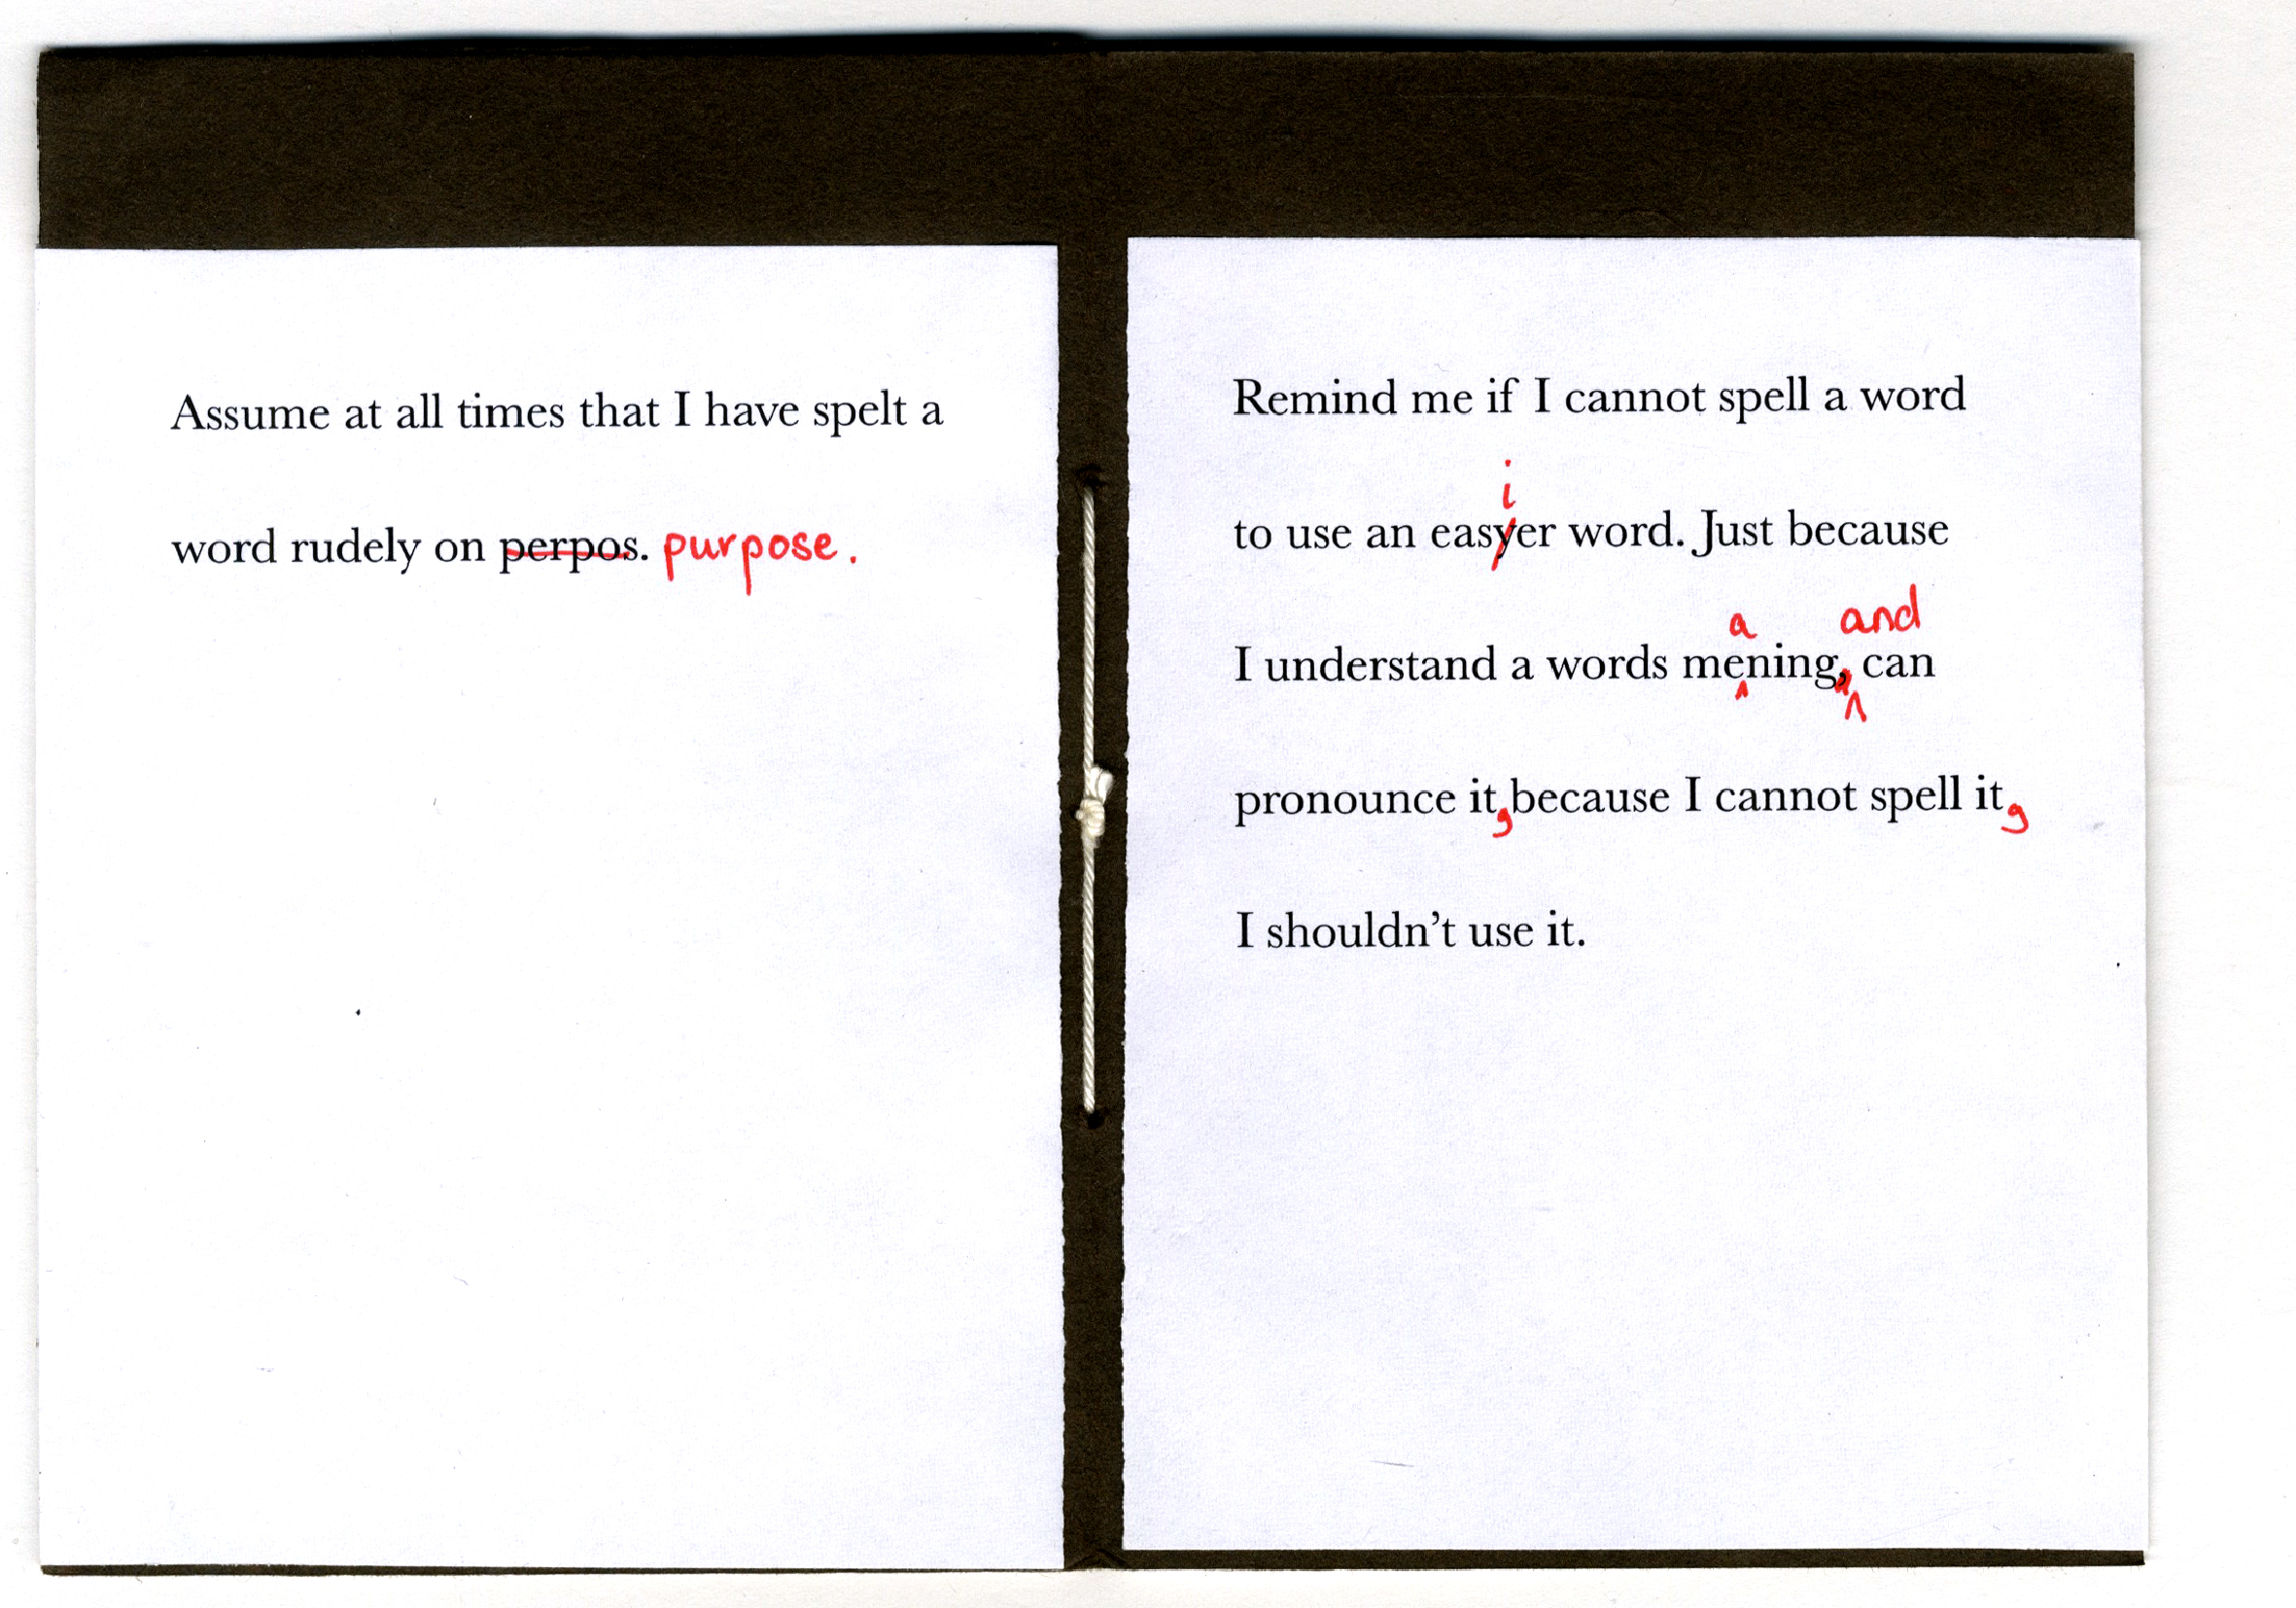 Assume at all times that I have spelt a
word rudely on perpos. purpose.
Remind me if I cannot spell a word
i
to use an easyer word. Just because
a and
I understand a words mening, can
pronounce it, because I cannot spell it,
I shouldn't use it.